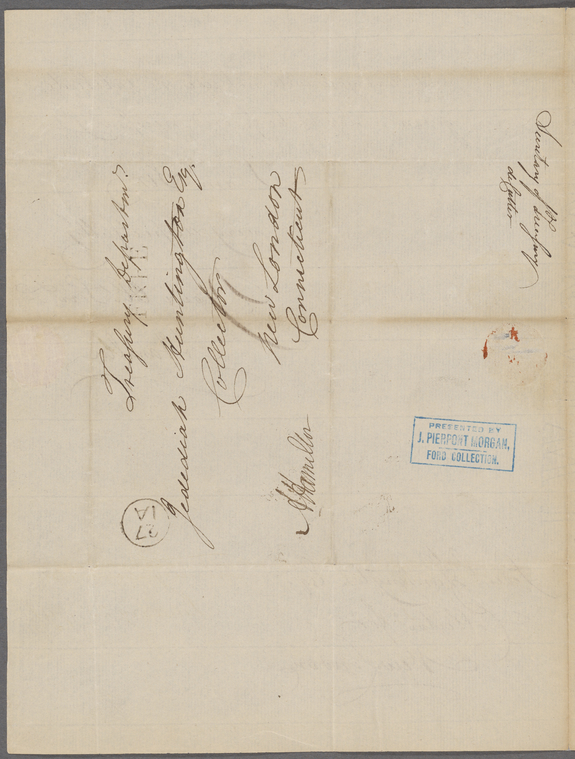 Treasury Departmt.
FREE
Jedediah Huntington Esq.
Collector
New London
Connecticut
A Hamilton
27
Secretary of Treasury
PRESENTED BY
J. PIERPONT MORGAN,
FORD COLLECTION.